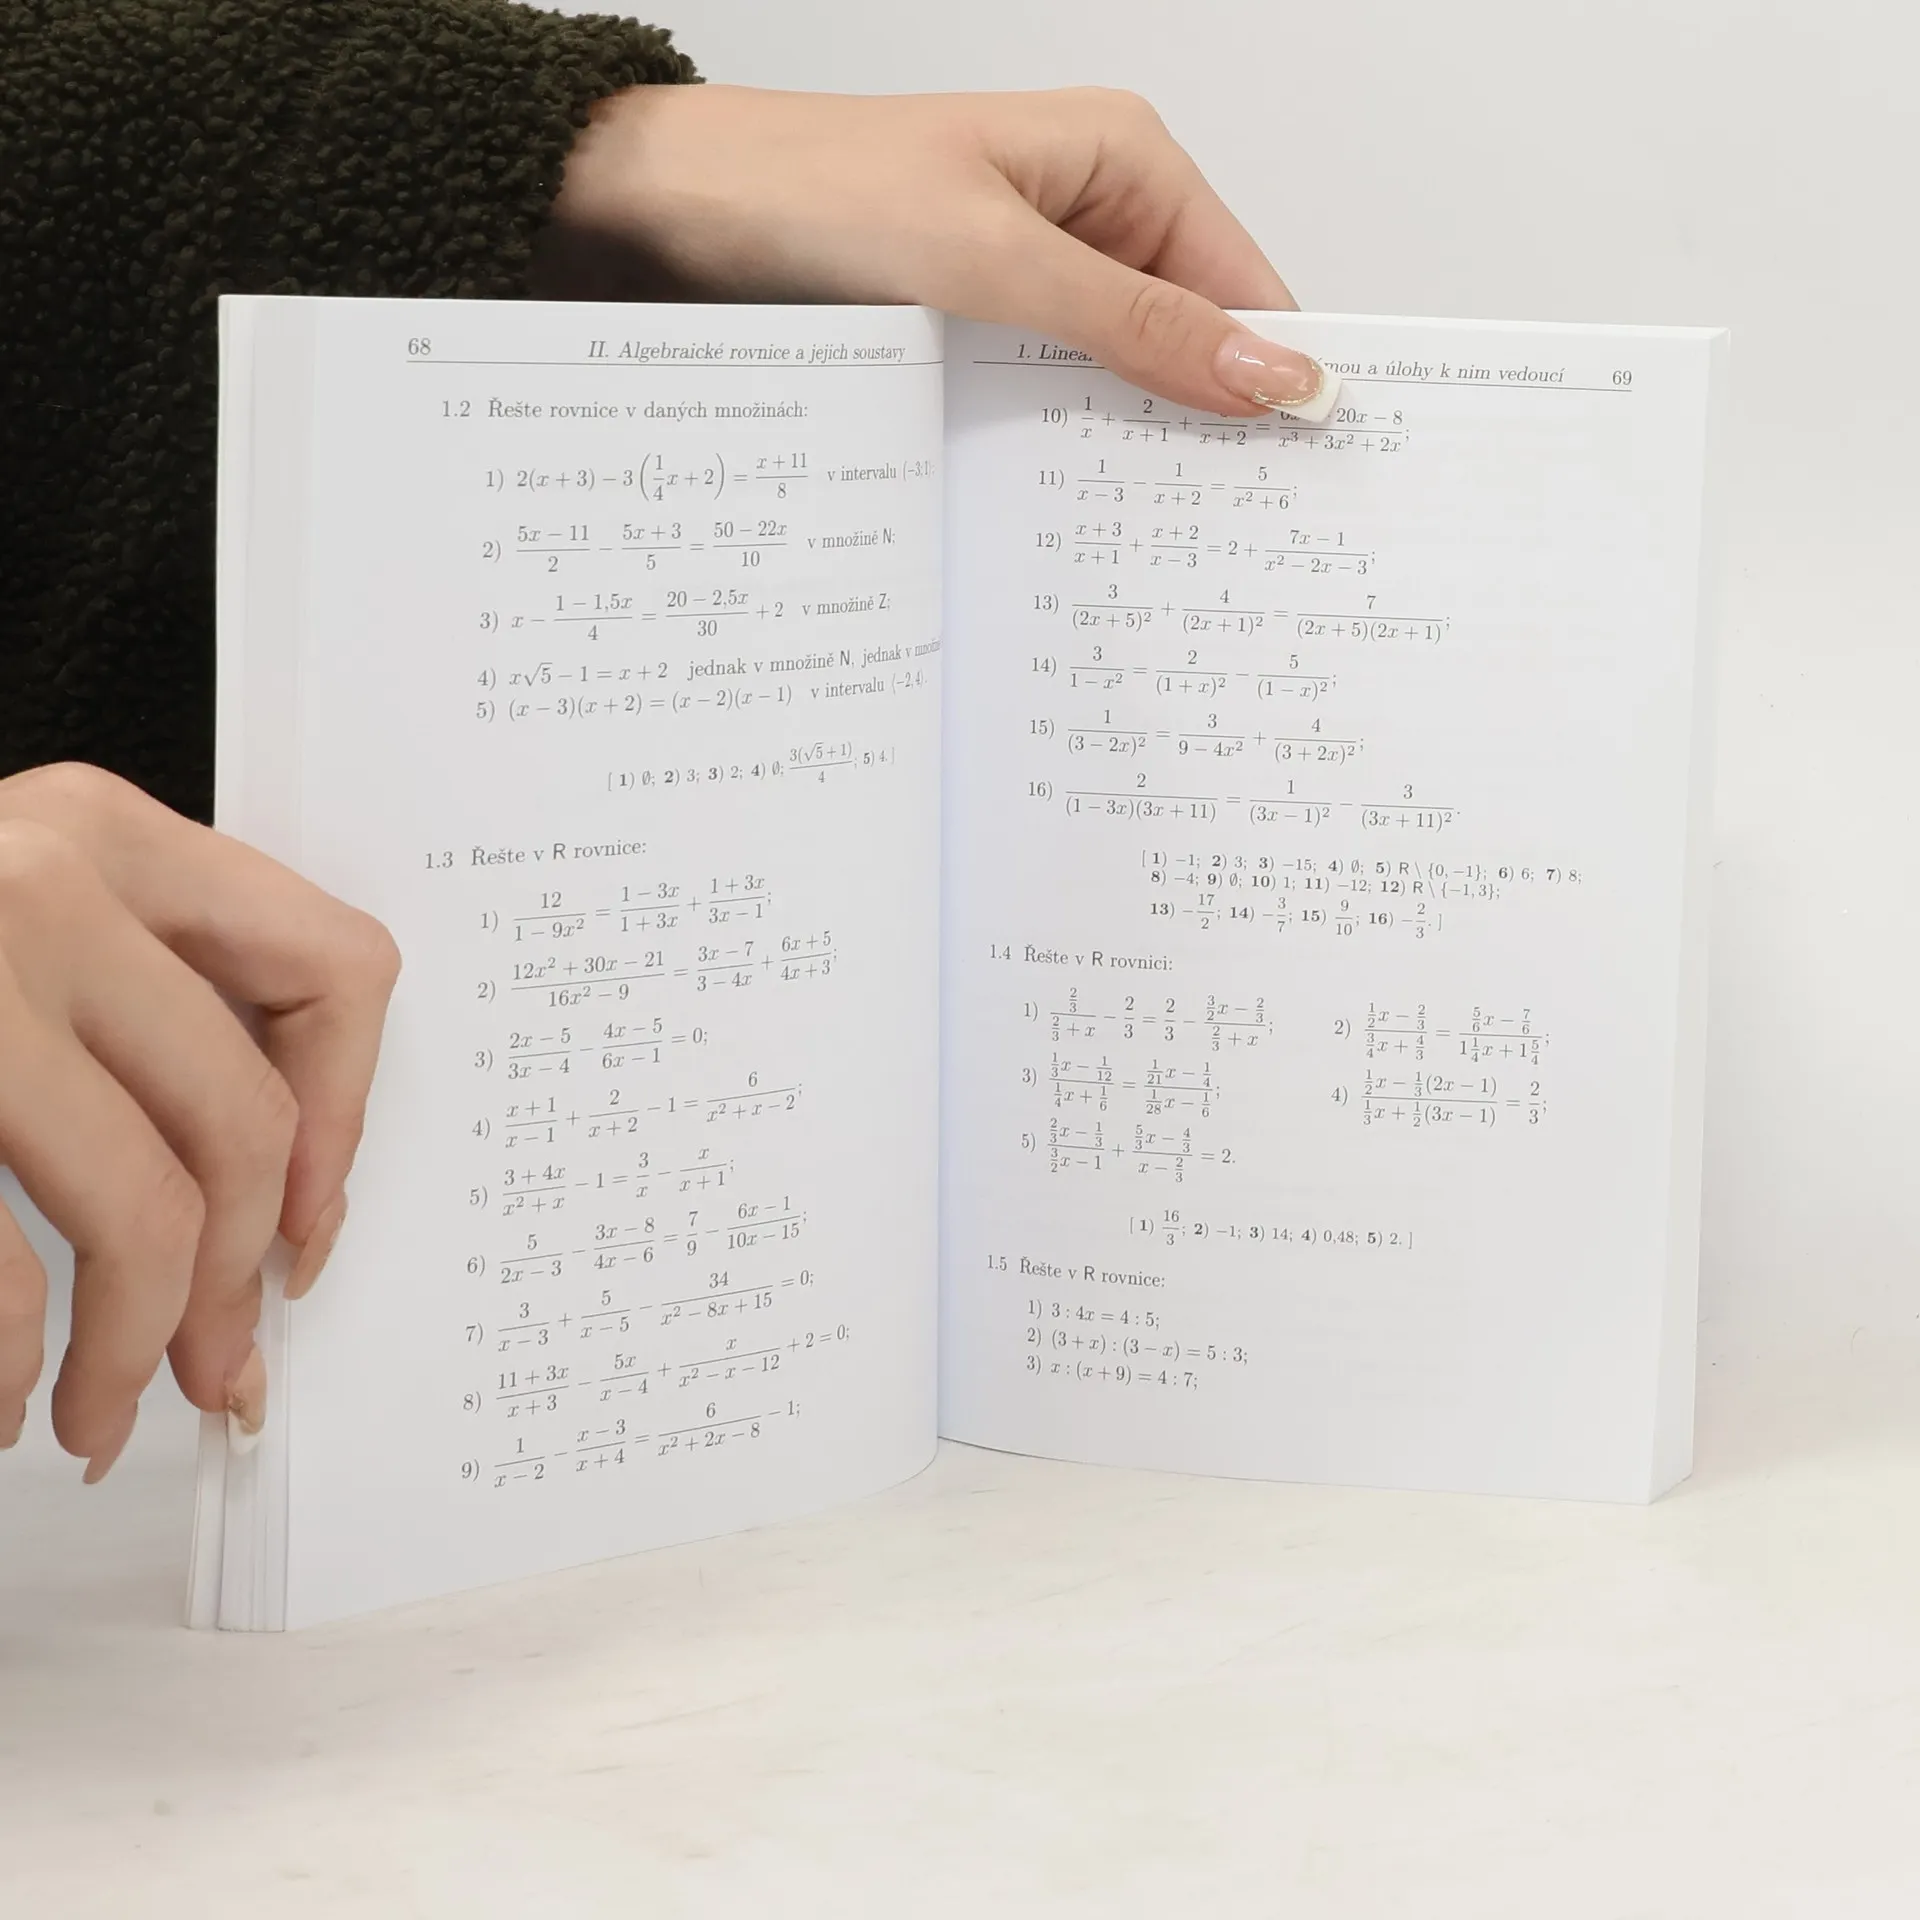 68 II. Algebraické rovnice a jejich soustavy
1.2 Řešte rovnice v daných množinách:
1) 2(x + 3) − 3(1/4 x + 2) = (x + 11)/8 v intervalu (−3,1⟩;
2) (5x − 11)/2 − (5x + 3)/5 = (50 − 22x)/10 v množině N;
3) x − (1 − 1,5x)/4 = (20 − 2,5x)/30 + 2 v množině Z;
4) x√5 − 1 = x + 2 jednak v množině N, jednak v
5) (x − 3)(x + 2) = (x − 2)(x − 1) v intervalu ⟨−2,4⟩.
[ 1) ∅; 2) 3; 3) 2; 4) ∅; 3(√5 + 1)/4; 5) 4. ]
1.3 Řešte v R rovnice:
1) 12/(1 − 9x²) = (1 − 3x)/(1 + 3x) + (1 + 3x)/(3x − 1);
2) (12x² + 30x − 21)/(16x² − 9) = (3x − 7)/(3 − 4x) + (6x + 5)/(4x + 3);
3) (2x − 5)/(3x − 4) − (4x − 5)/(6x − 1) = 0;
4) (x + 1)/(x − 1) + 2/(x + 2) − 1 = 6/(x² + x − 2);
5) (3 + 4x)/(x² + x) − 1 = 3/x − x/(x + 1);
6) 5/(2x − 3) − (3x − 8)/(4x − 6) = 7/9 − (6x − 1)/(10x − 15);
7) 3/(x − 3) + 5/(x − 5) − 34/(x² − 8x + 15) = 0;
8) (11 + 3x)/(x + 3) − 5x/(x − 4) + x/(x² − x − 12) + 2 = 0;
9) 1/(x − 2) − (x − 3)/(x + 4) = 6/(x² + 2x − 8) − 1;
1. a úlohy k nim vedoucí 69
10) 1/x + 2/(x + 1) + /(x + 2) = 20x − 8/(x³ + 3x² + 2x);
11) 1/(x − 3) − 1/(x + 2) = 5/(x² + 6);
12) (x + 3)/(x + 1) + (x + 2)/(x − 3) = 2 + (7x − 1)/(x² − 2x − 3);
13) 3/(2x + 5)² + 4/(2x + 1)² = 7/((2x + 5)(2x + 1));
14) 3/(1 − x²) = 2/(1 + x)² − 5/(1 − x)²;
15) 1/(3 − 2x)² = 3/(9 − 4x²) + 4/(3 + 2x)²;
16) 2/((1 − 3x)(3x + 11)) = 1/(3x − 1)² − 3/(3x + 11)².
[ 1) −1; 2) 3; 3) −15; 4) ∅; 5) R \ {0, −1}; 6) 6; 7) 8;
8) −4; 9) ∅; 10) 1; 11) −12; 12) R \ {−1, 3};
13) −17/2; 14) −3/7; 15) 9/10; 16) −2/3. ]
1.4 Řešte v R rovnici:
1) (2/3)/(2/3 + x) − 2/3 = 2/3 − (3/2 x − 2/3)/(2/3 + x); 2) (1/2 x − 2/3)/(3/4 x + 4/3) = (5/6 x − 7/6)/(1 1/4 x + 1 5/4);
3) (1/3 x − 1/12)/(1/4 x + 1/6) = (1/21 x − 1/4)/(1/28 x − 1/6); 4) (1/2 x − 1/3(2x − 1))/(1/3 x + 1/2(3x − 1)) = 2/3;
5) (2/3 x − 1/3)/(3/2 x − 1) + (5/3 x − 4/3)/(x − 2/3) = 2.
[ 1) 16/3; 2) −1; 3) 14; 4) 0,48; 5) 2. ]
1.5 Řešte v R rovnice:
1) 3 : 4x = 4 : 5;
2) (3 + x) : (3 − x) = 5 : 3;
3) x : (x + 9) = 4 : 7;